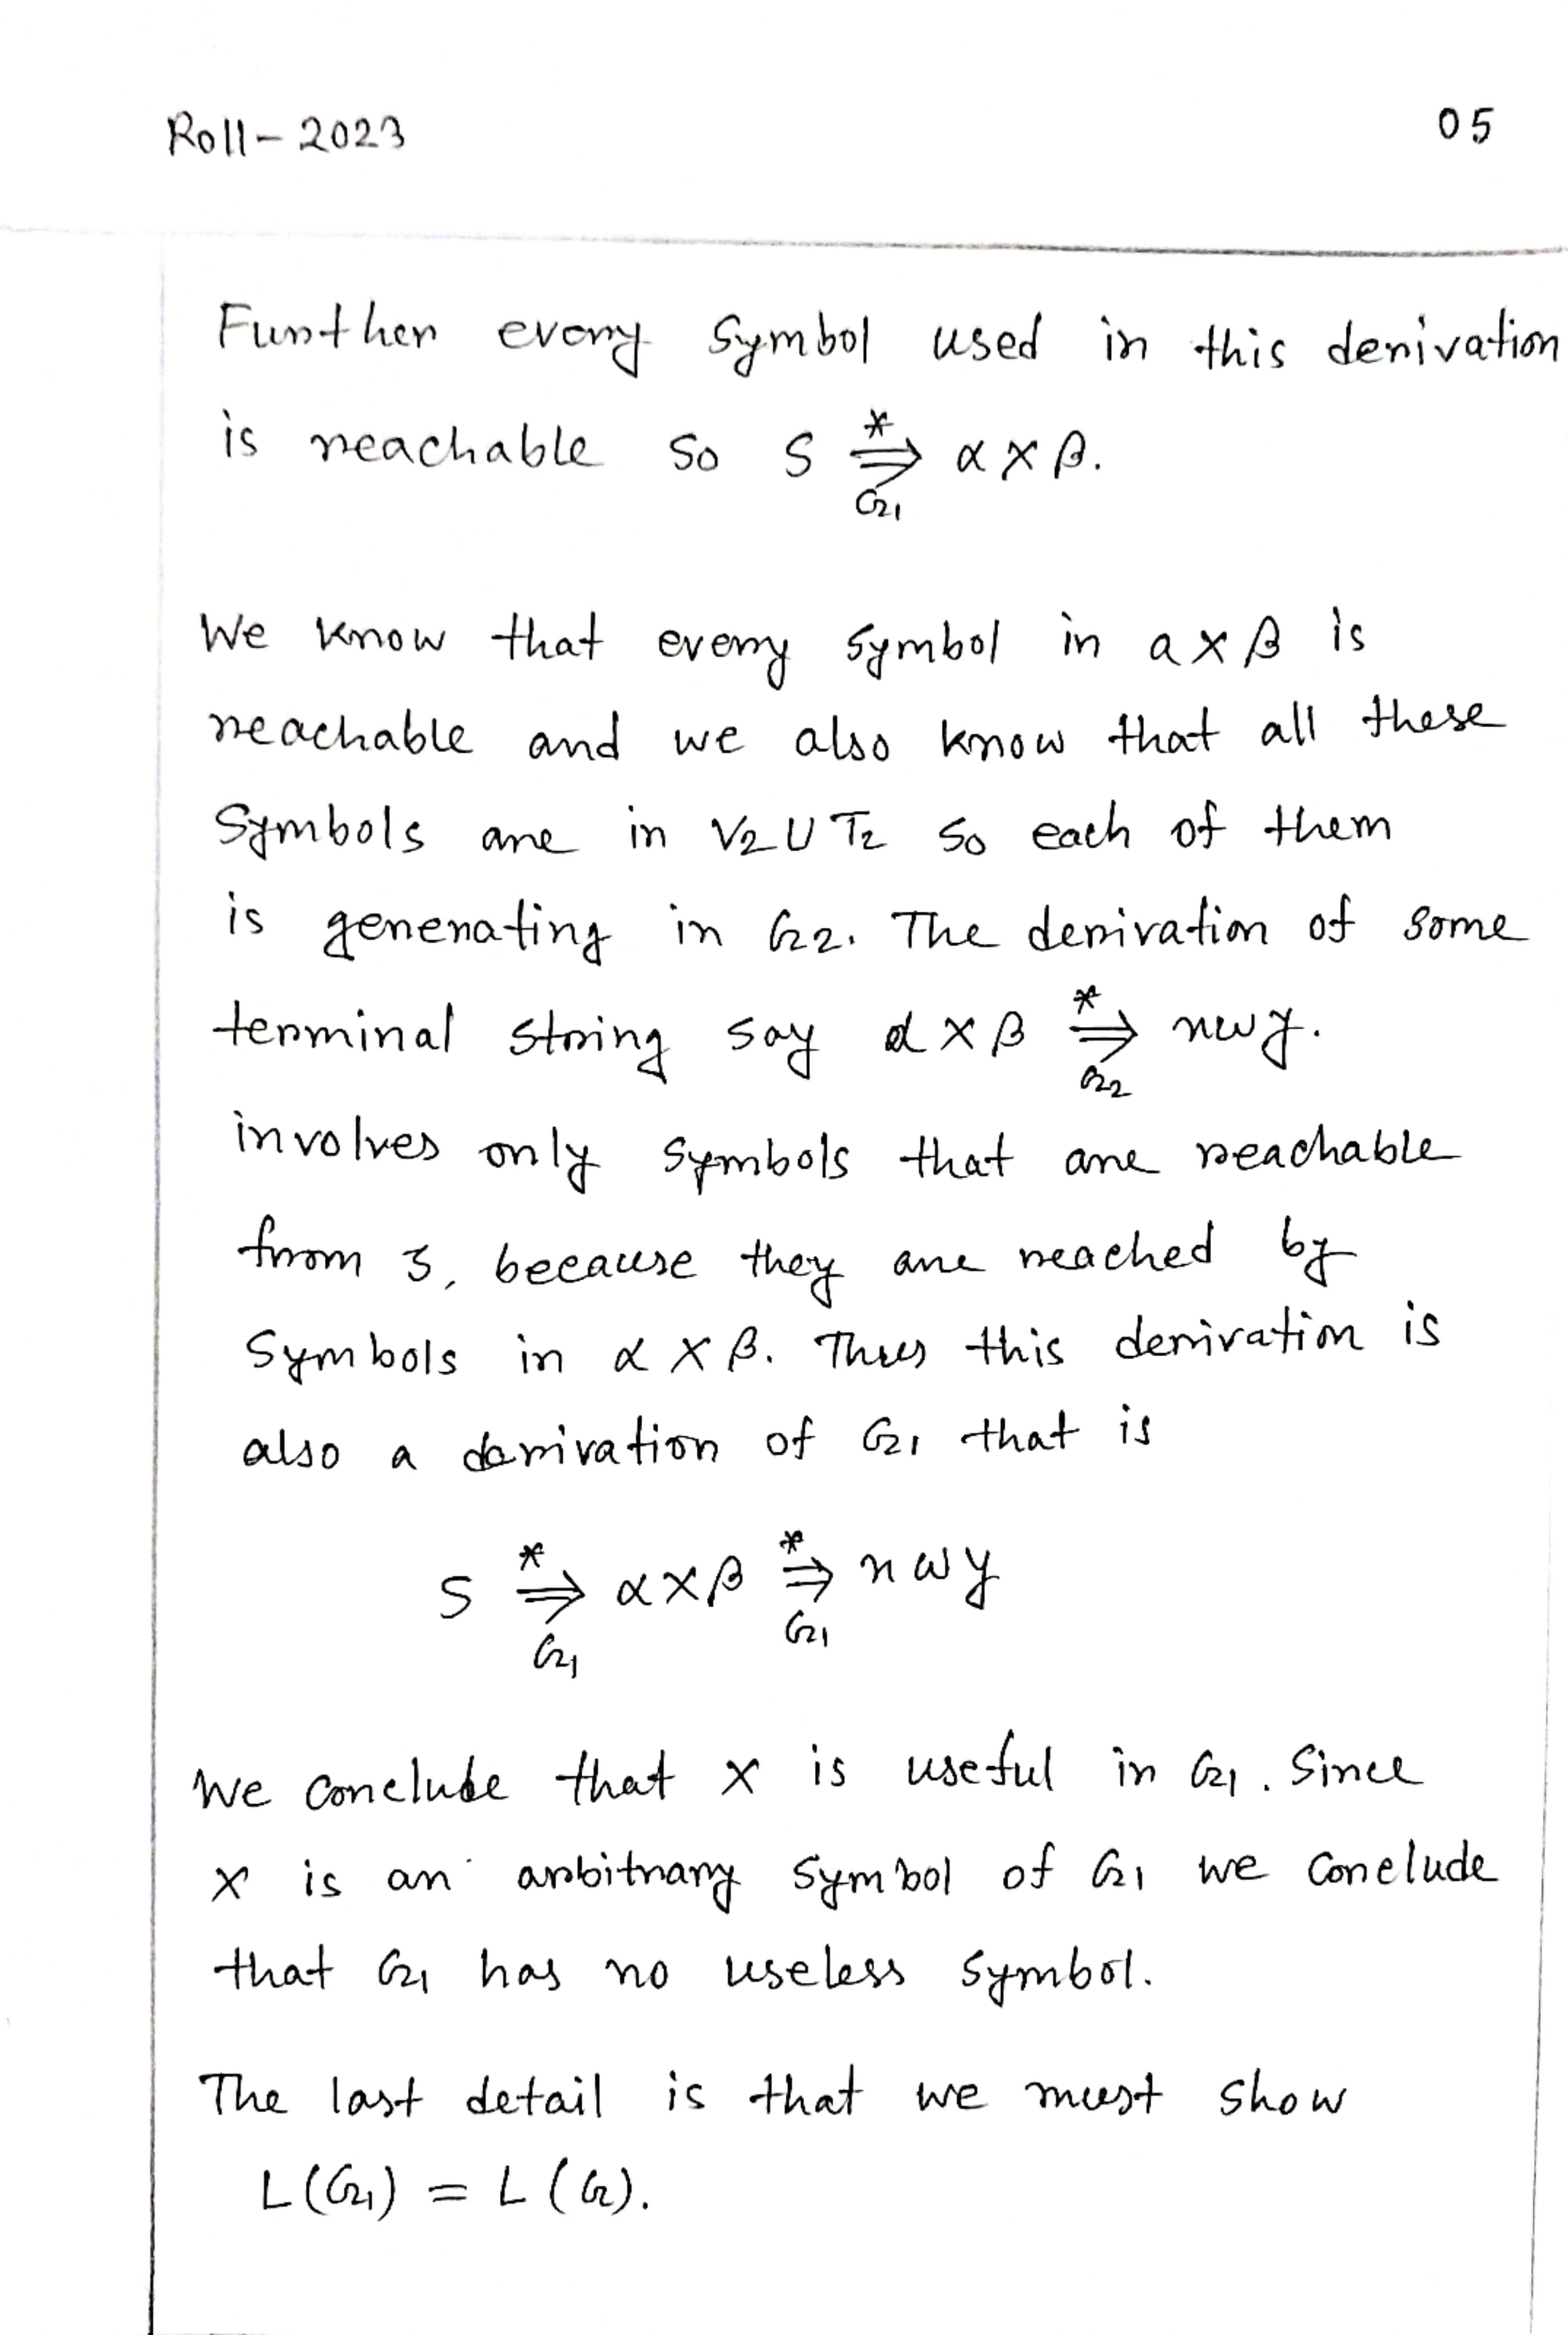 Roll-2023
05
Further every symbol used in this derivation
is reachable so S *⇒ αXβ.
G1
We know that every symbol in aXβ is
reachable and we also know that all these
Symbols are in V2UT2 so each of them
is generating in G2. The derivation of some
terminal string say αXβ *⇒ xwy.
G2
involves only symbols that are reachable
from S, because they are reached by
Symbols in αXβ. Thus this derivation is
also a derivation of G1 that is
S *⇒ αXβ *⇒ xwy
G1 G1
We conclude that X is useful in G1. Since
X is an arbitrary symbol of G1 we conclude
that G1 has no useless symbol.
The last detail is that we must show
L(G1) = L(G).